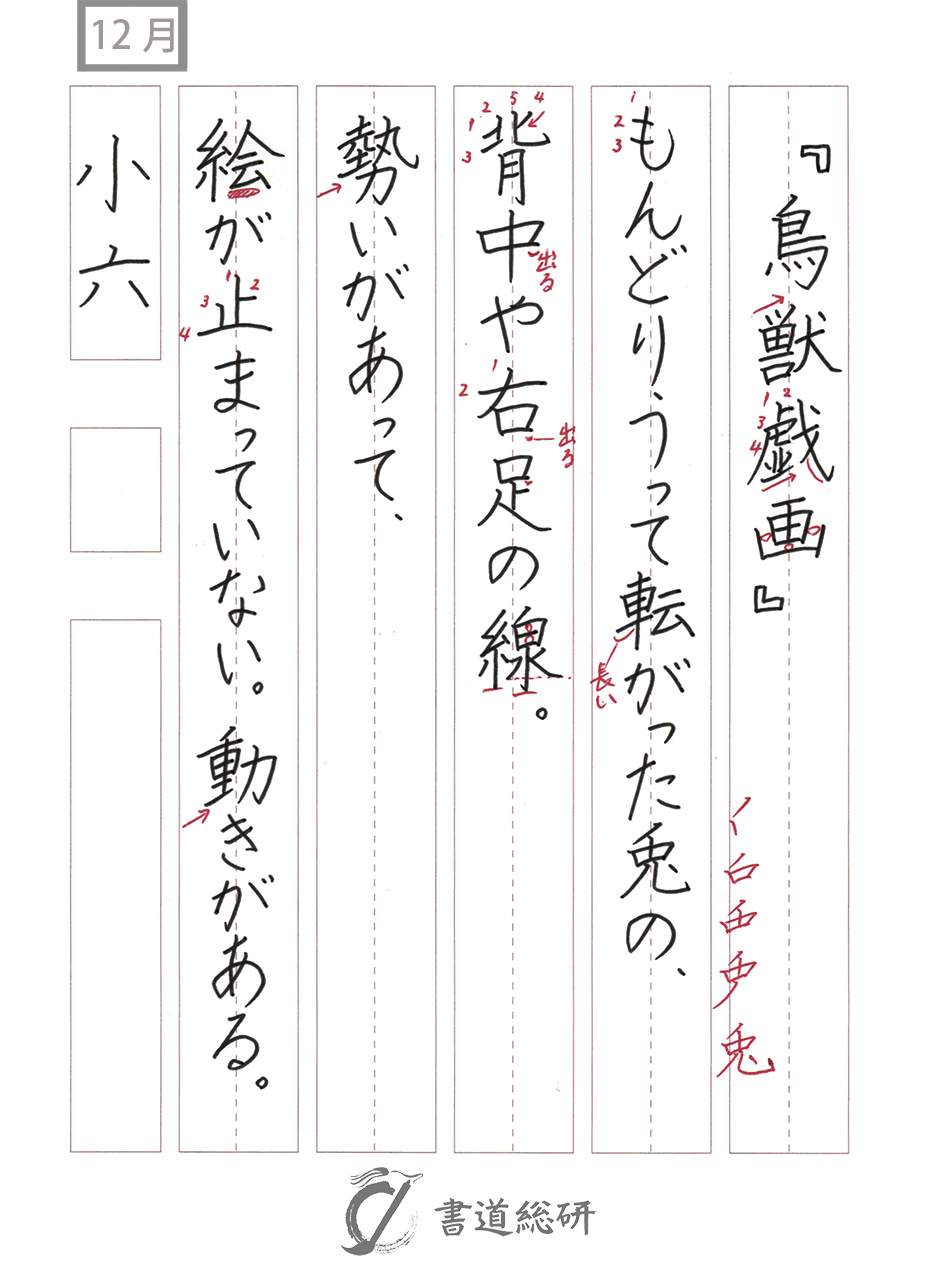 12月
『鳥獣戯画』
もんどりうって転がった兎の、
背中や右足の線。
勢いがあって、
絵が止まっていない。動きがある。
小六
1
2
3
長い
2
5
4
1
3
出る
1
2
出る
1
2
3
4
1
2
3
4
兎
書道総研